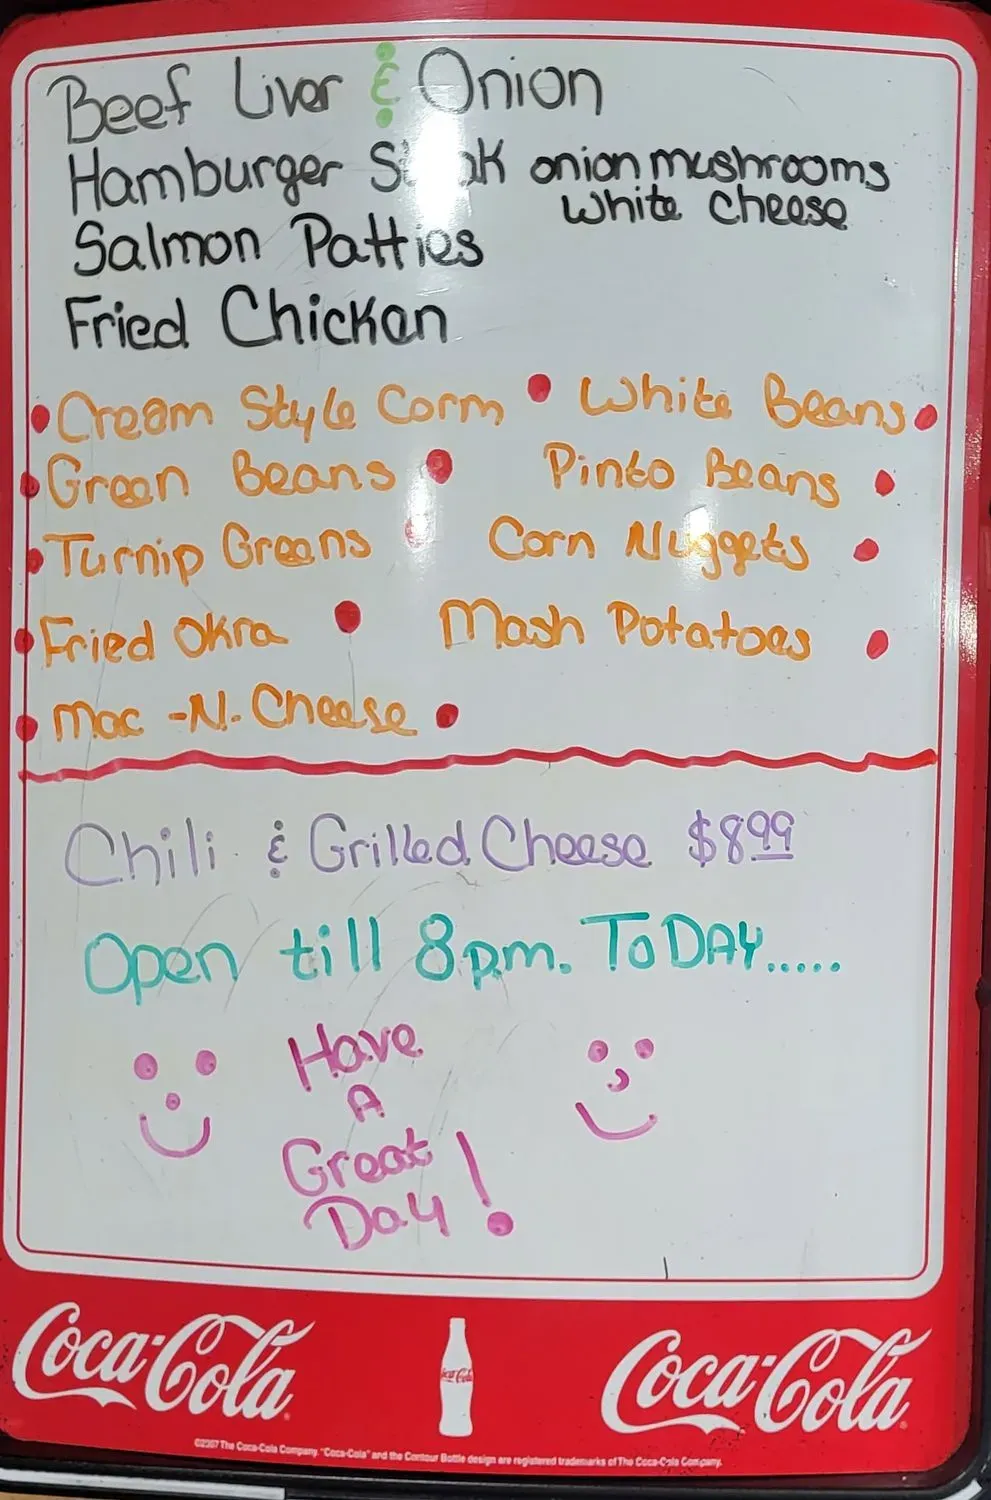 Beef Liver & Onion
Hamburger Steak onion mushrooms
White Cheese
Salmon Patties
Fried Chicken
• Cream Style Corm • White Beans •
• Green Beans • Pinto Beans •
• Turnip Greens • Corn Nuggets •
• Fried Okra • Mash Potatoes •
• Mac -N- Cheese •
Chili & Grilled Cheese $8.99
Open till 8p.m. ToDAY.....
Have
A
Great
Day!
Coca-Cola Coca-Cola Coca-Cola
©2007 The Coca-Cola Company. "Coca-Cola" and the Contour Bottle design are registered trademarks of The Coca-Cola Company.